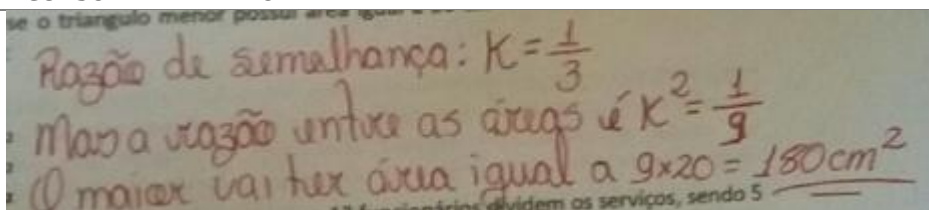 se o triangulo menor possui area igual a
Razão de semelhança: K = 1/3
Mas a razão entre as áreas é K² = 1/9
O maior vai ter área igual a 9x20 = 180cm²
funcionários dividem os serviços, sendo 5